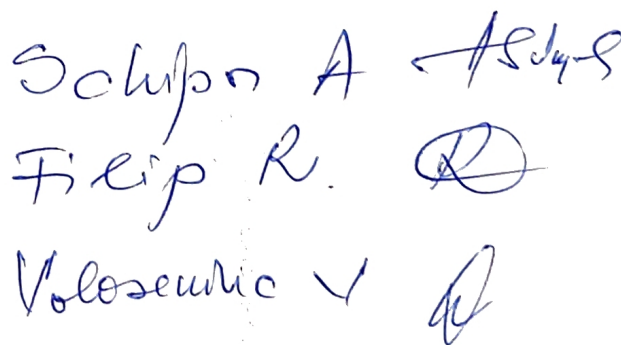 Schipor A
Filip R.
Volosenuic V